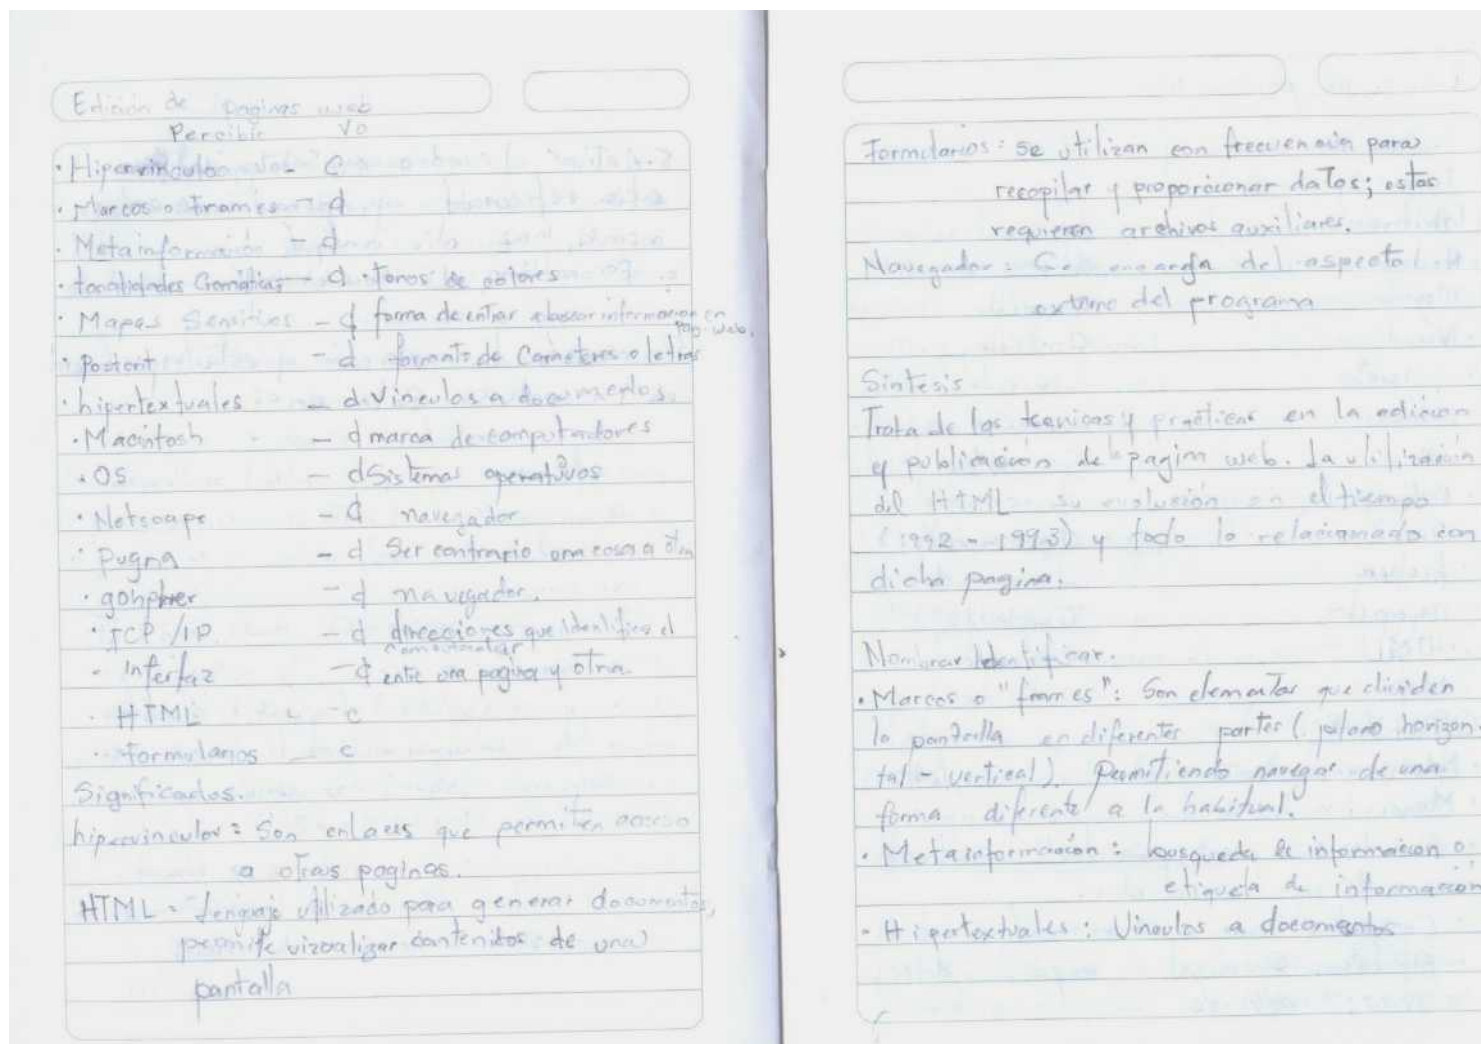 Edición de paginas web
Percibir Vo
· Hipervinculo - c
· Marcos o Frames - d
· Metainformación - d
· tonalidades Cromáticas - d · Tonos de colores
· Mapas Sensitives - d forma de entrar a buscar información en
pag. web.
- d formato de Carácteres o letras
· hipertextuales - d Vinculos a documentos.
· Macintosh - d marca de computadores
· OS - d Sistemas operativos
· Netscape - d navegador
· Pugna - d Ser contrario una cosa a otra
· - d navegador.
· TCP/IP. - d direcciones que identifica el
computador
- Interfaz - d entre una pagina y otra.
· HTML - c
· Formularios - c
Significados.
hipervinculos = Son enlaces que permiten acceso
a otras paginas.
HTML = Lenguaje utilizado para generar documentos,
permite vizualizar contenitos de una
pantalla
Formularios: se utilizan con frecuencia para
recopilar y proporcionar datos; estos
requieren archivos auxiliares.
Navegador: Se encarga del aspecto
externo del programa
Sintesis
Trata de las tecnicas y prácticas en la edición
y publicación de pagina web. La utilización
del HTML su evolusión en el tiempo
(1992 - 1993) y todo lo relacionado con
dicha pagina.
Nombrar Identificar.
· Marcos o "frames": Son elementos que dividen
la pantalla en diferentes partes (plano horizon-
tal - vertical). Permitiendo navegar de una
forma diferente a la habitual.
· Metainformación: busqueda de información o
etiqueta de información
· Hipertextuales: Vinculos a documentos